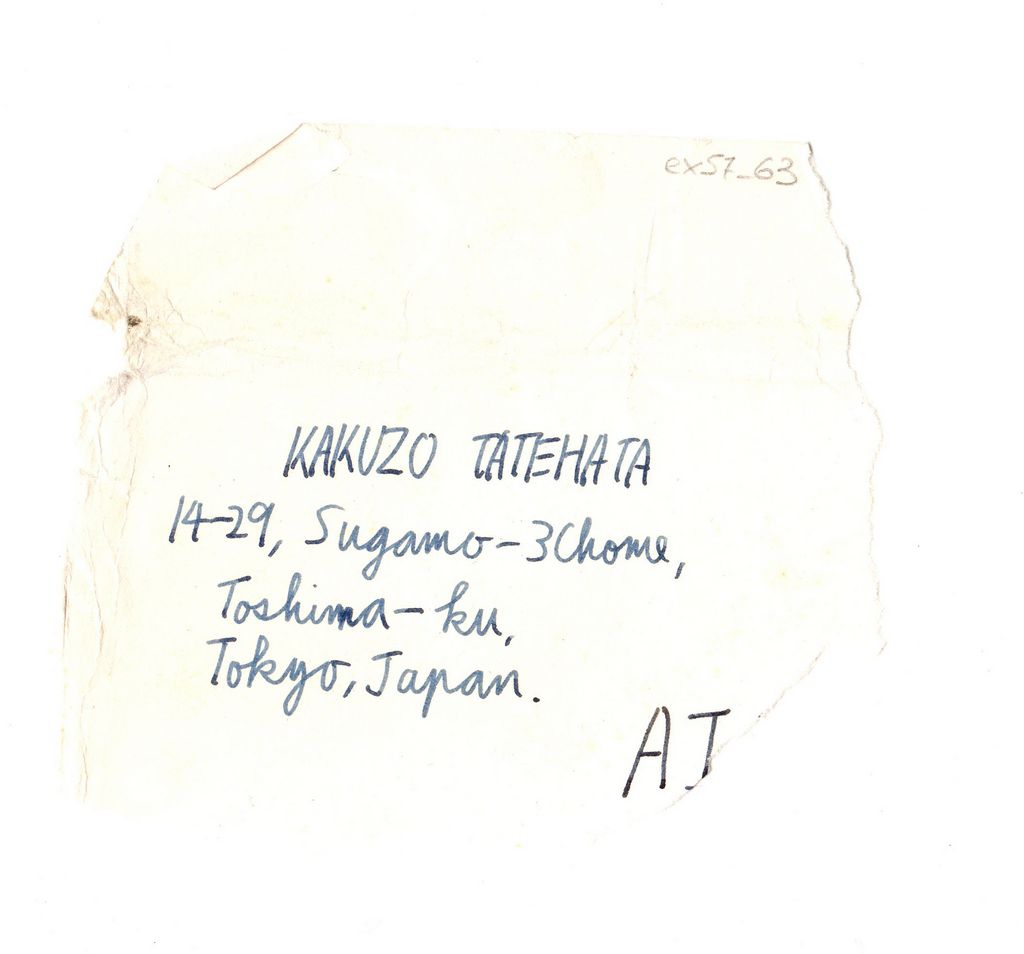 ex57_63
KAKUZO TATEHATA
14-29, Sugamo-3Chome,
Toshima-ku,
Tokyo, Japan.